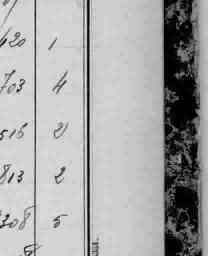 420 1
703 4
516 2
813 2
308 5